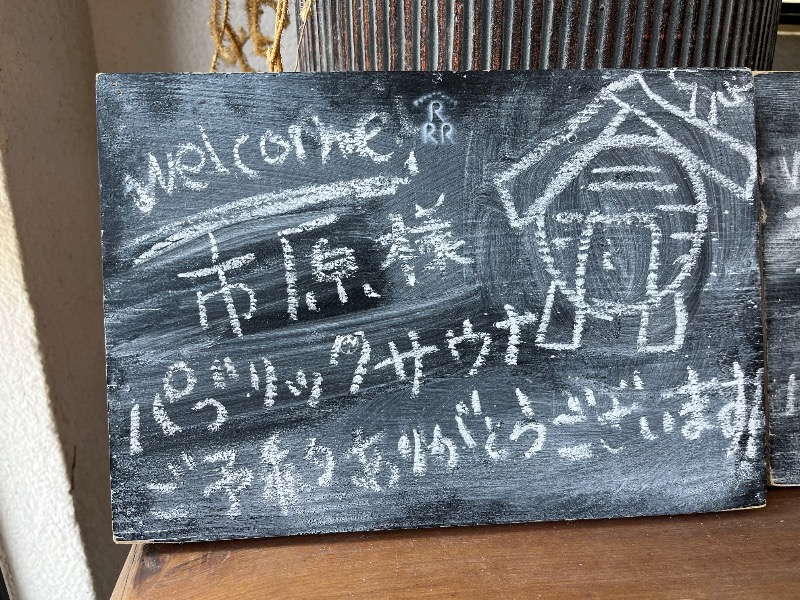 welcome!
R
RR
市原様
パブリックサウナ
ご予約ありがとうございます!